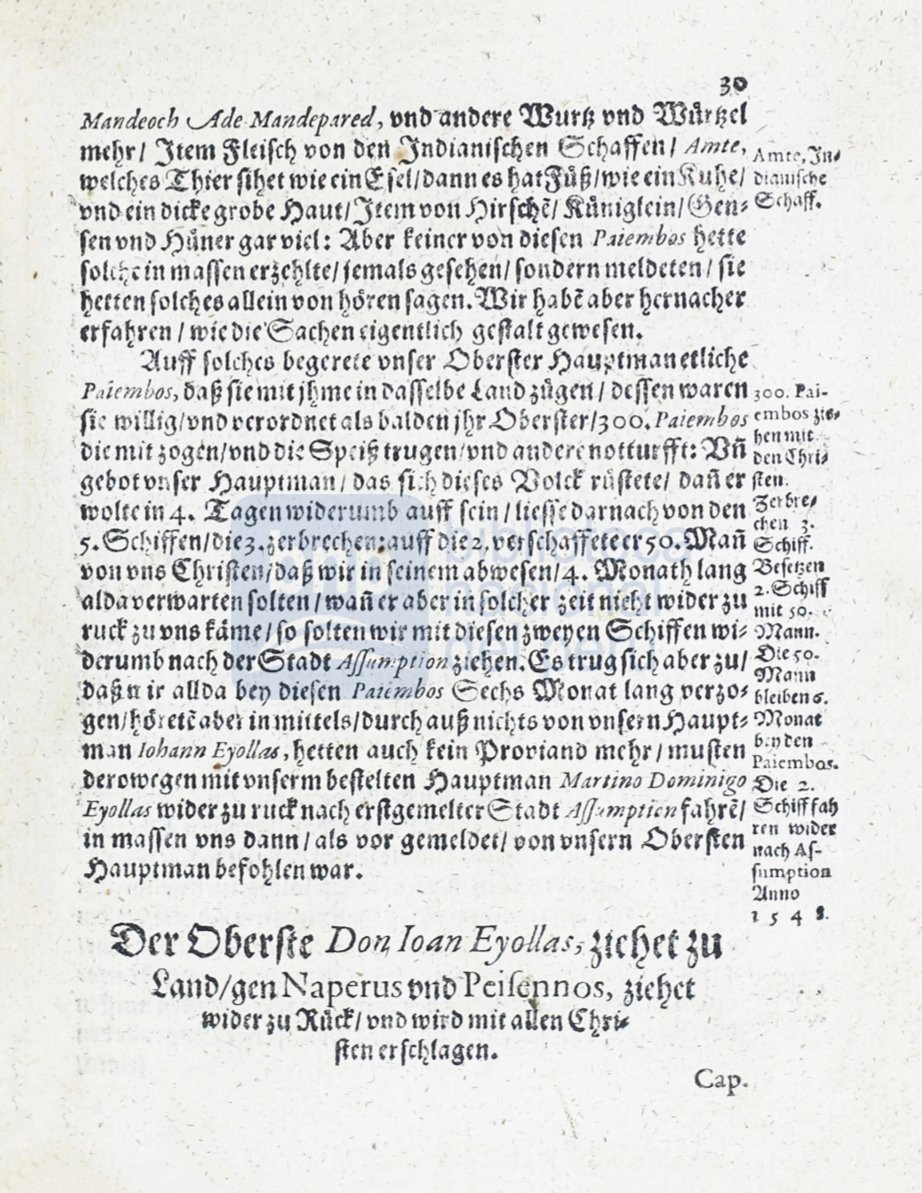 30
Mandeoch Ade Mandepared, vnd andere Wurtz vnd Würtzel
mehr/ Item Fleisch von den Indianischen Schaffen/ Amte,
welches Thier sihet wie ein Esel/dann es hat Füß/wie ein Kuhe/
vnd ein dicke grobe Haut/Item von Hirschē/ Küniglein/Gen⸗
sen vnd Hüner gar viel: Aber keiner von diesen Paiembos hette
solche in massen erzehlte/ jemals gesehen/ sondern meldeten/ sie
hetten solches allein von hören sagen. Wir habē aber hernacher
erfahren / wie die Sachen eigentlich gestalt gewesen.
Auff solches begerete vnser Oberster Hauptman etliche
Paiembos, daß sie mit jhme in dasselbe Land zügen/ dessen waren
sie willig/vnd verordnet als balden jhr Oberster/300. Paiembos
die mit zogen/vnd die Speiß trugen/vnd andere notturfft: Vñ
gebot vnser Hauptman/ das sich dieses Volck rüstete/ dañ er
wolte in 4. Tagen widerumb auff sein / liesse darnach von den
5. Schiffen/die 3. zerbrechen: auff die 2. verschaffete er 50. Mañ
von vns Christen/daß wir in seinem abwesen/4. Monath lang
alda verwarten solten / wañ er aber in solcher zeit nicht wider zu
ruck zu vns käme/ so solten wir mit diesen zweyen Schiffen wi⸗
derumb nach der Stadt Assumption ziehen. Es trug sich aber zu/
daß wir allda bey diesen Paiembos Sechs Monat lang verzo⸗
gen/höretē aber in mittels/durch auß nichts von vnsern Haupt⸗
man Iohann Eyollas, hetten auch kein Proviand mehr/ musten
derowegen mit vnserm bestelten Hauptman Martino Dominigo
Eyollas wider zu ruck nach erstgemelter Stadt Assumption fahrē/
in massen vns dann/ als vor gemeldet/ von vnsern Obersten
Hauptman befohlen war.
Amte, In⸗
dianische
Schaff.
300. Pai-
embos zie⸗
hen mit
den Chri⸗
sten.
Zerbre⸗
chen 3.
Schiff.
Besetzen
2. Schiff
mit 50.
Mann.
Die 50.
Mann
bleiben 6.
Monat
bey den
Paiembos.
Die 2.
Schiff fah
ren wider
nach As-
sumption
Anno
1 5 4 8.
Der Oberste Don Ioan Eyollas, ziehet zu
Land/gen Naperus vnd Peisennos, ziehet
wider zu Rück/ vnd wird mit allen Chri⸗
sten erschlagen.
Cap.